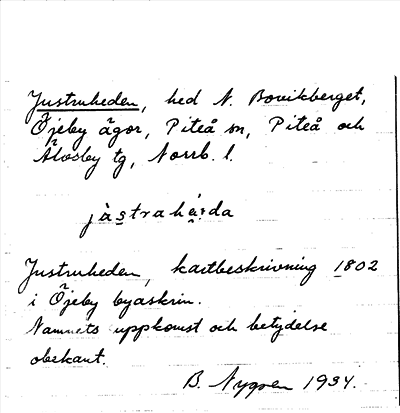 Justruheden, hed N. Bovikberget,
Öjeby ägor, Piteå sn, Piteå och
Älvsby tg, Norrb. l.
jàstrahé:da
Justruheden, kartbeskrivning 1802
i Öjeby byaskrin.
Namnets uppkomst och betydelse
obekant.
B. Nygren 1934.